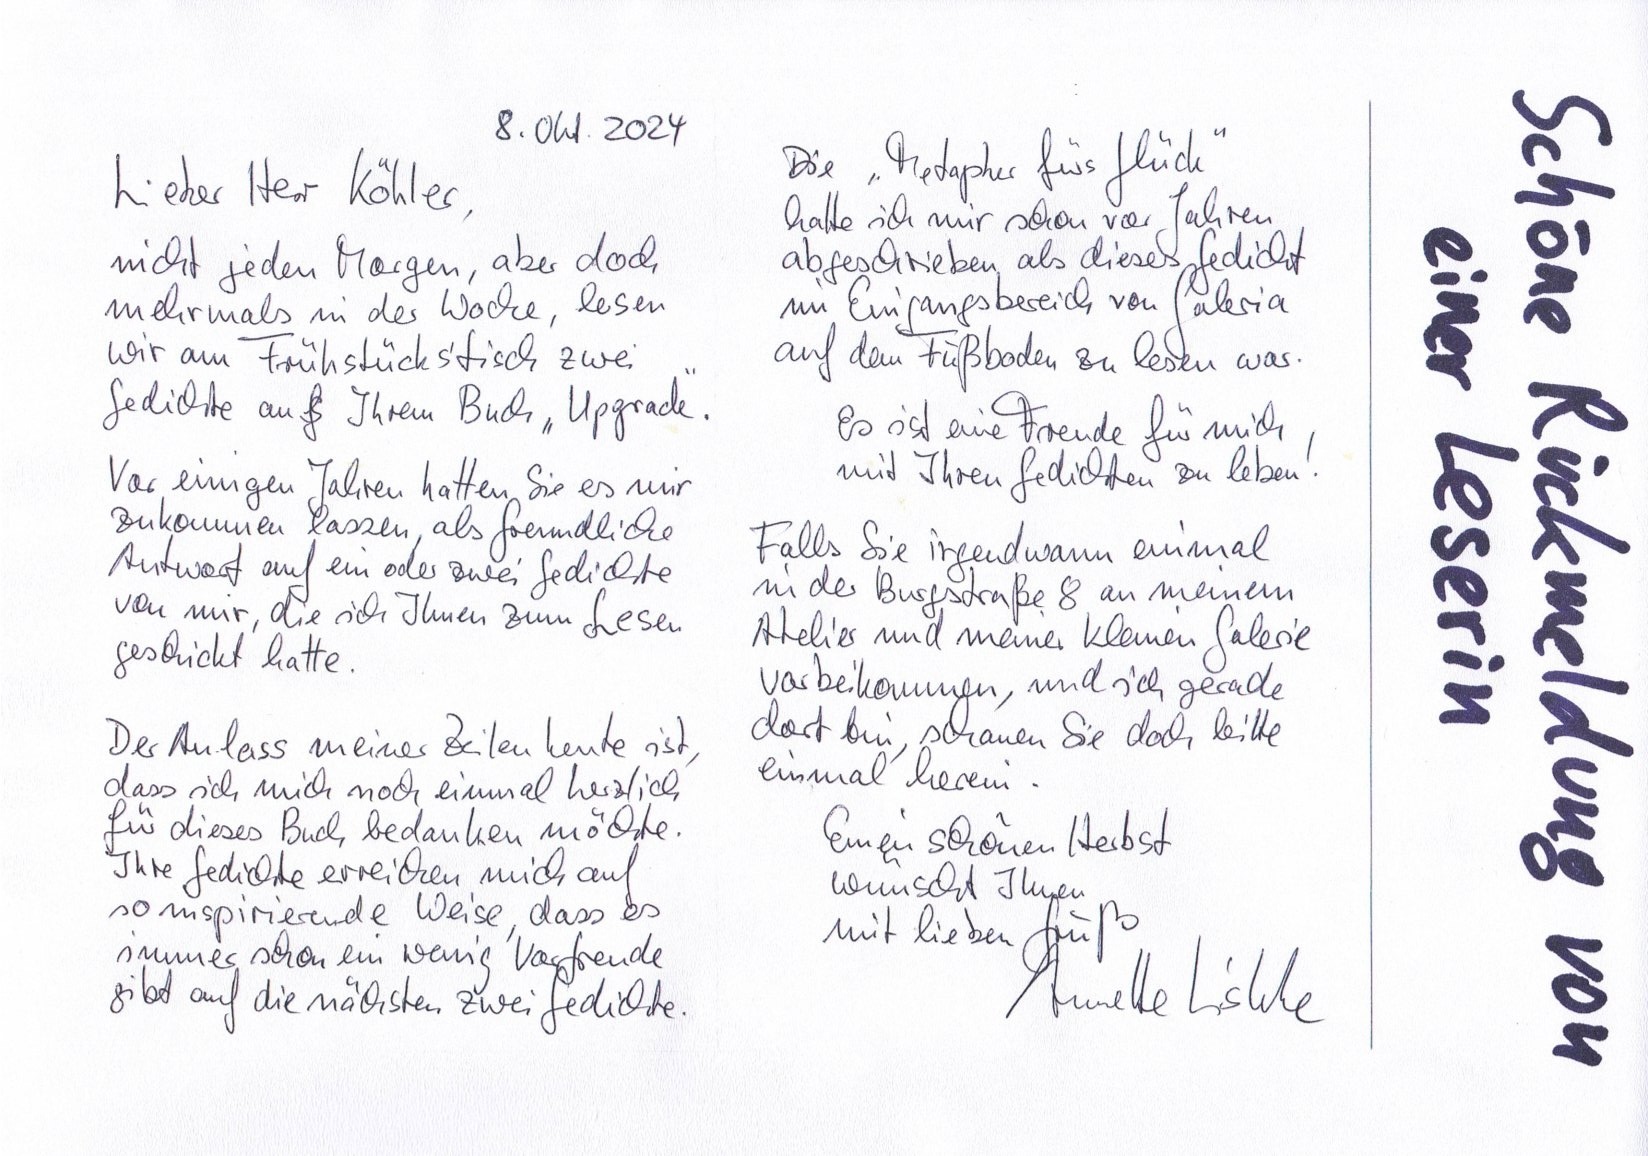 8. Okt. 2024
Lieber Herr Köhler,
nicht jeden Morgen, aber doch
mehrmals in der Woche, lesen
wir am Frühstückstisch zwei
Gedichte aus Ihrem Buch „Upgrade“.
Vor einigen Jahren hatten Sie es mir
zukommen lassen, als freundliche
Antwort auf ein oder zwei Gedichte
von mir, die ich Ihnen zum Lesen
geschickt hatte.
Der Anlass meiner Zeilen heute ist,
dass ich mich noch einmal herzlich
für dieses Buch bedanken möchte.
Ihre Gedichte erreichen mich auf
so inspirierende Weise, dass es
immer schon ein wenig Vorfreude
gibt auf die nächsten zwei Gedichte.
Die „Metapher fürs Glück“
hatte ich mir schon vor Jahren
abgeschrieben, als dieses Gedicht
im Eingangsbereich von Galeria
auf dem Fußboden zu lesen war.
Es ist eine Freude für mich,
mit Ihren Gedichten zu leben!
Falls Sie irgendwann einmal
in der Burgstraße 8 an meinem
Atelier und meiner kleinen Galerie
vorbeikommen, und ich gerade
dort bin, schauen Sie doch bitte
einmal herein.
Einen schönen Herbst
wünscht Ihnen
mit lieben Gruß
Annette
Schöne Rückmeldung von
einer Leserin